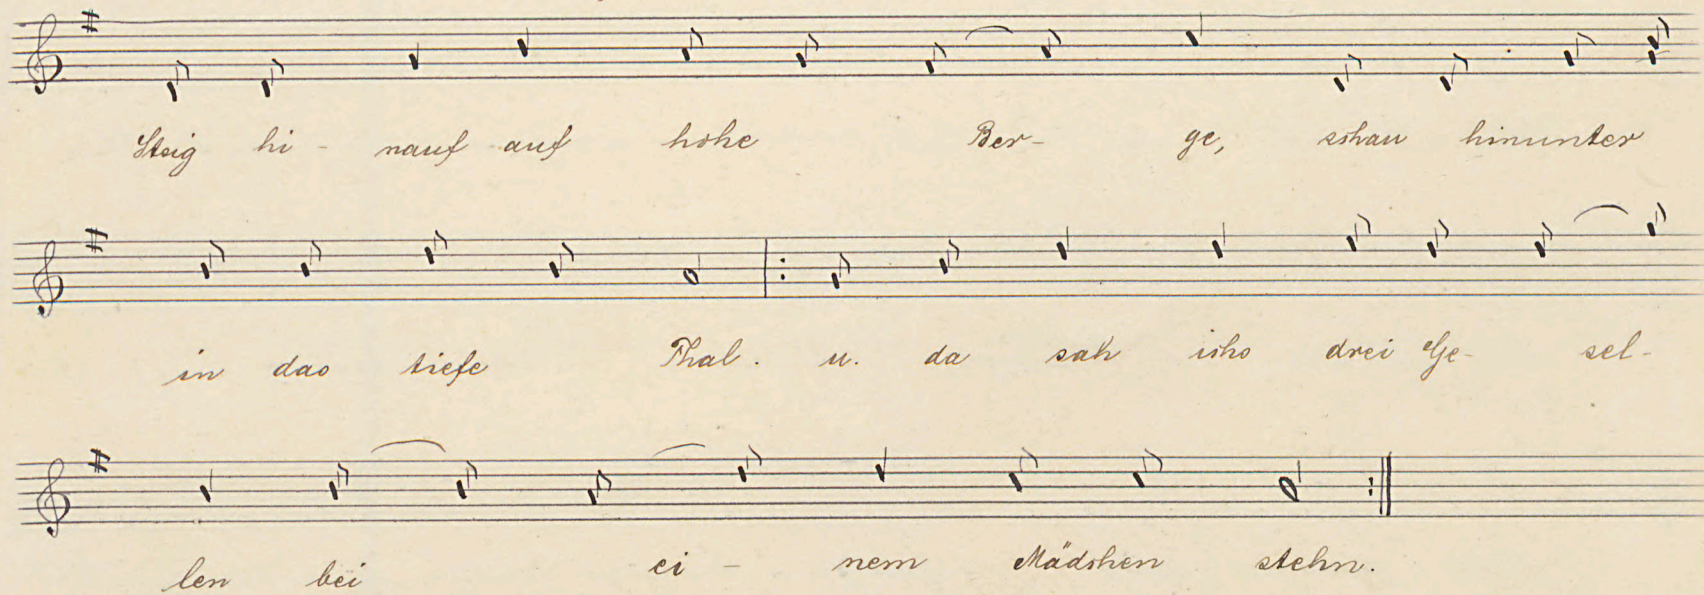 Steig hi - nauf auf hohe Ber- ge, schau hinunter
in das tiefe Thal. u. da sah ichs drei Ge- sel-
len bei ei - nem Mädchen stehn.